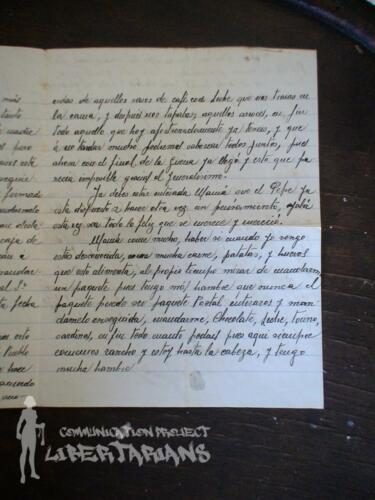 más
endas de aquellos vasos de café con leche que nos traias en
la cama, y después nos tapabas; aquellos arroces, en fin
todo aquello que hoy afortunadamente ya tenéis, y que
no tardar mucho podremos saborear todos juntos, pues
ahora con el final de la Guerra ya llegó y esto que pa
recia imposible ganó el Generalisimo.
Ya debes estar enterada Mamá que el Pepe ya
está dispuesto a hacer otra vez un pensamiento, ojalá
esta vez sea todo lo feliz que se merece y mereció.
Mamá come mucho, haber si cuando yo vengo
estás desconocida, mucha carne, patatas, y huevos
que esto alimenta, al propio tiempo mirar de mandarme
un paquete pues tengo más hambre que nunca el
paquete puede ser paquete Postal enteraros y man
darmelo enseguida, mandarme, Chocolate, Leche, tocino,
sardinas, en fin todo cuanto podais pues aqui siempre
comemos rancho y estoy hasta la cabeza, y tengo
mucha hambre
COMMUNICATION PROJECT
LIBERTARIANS